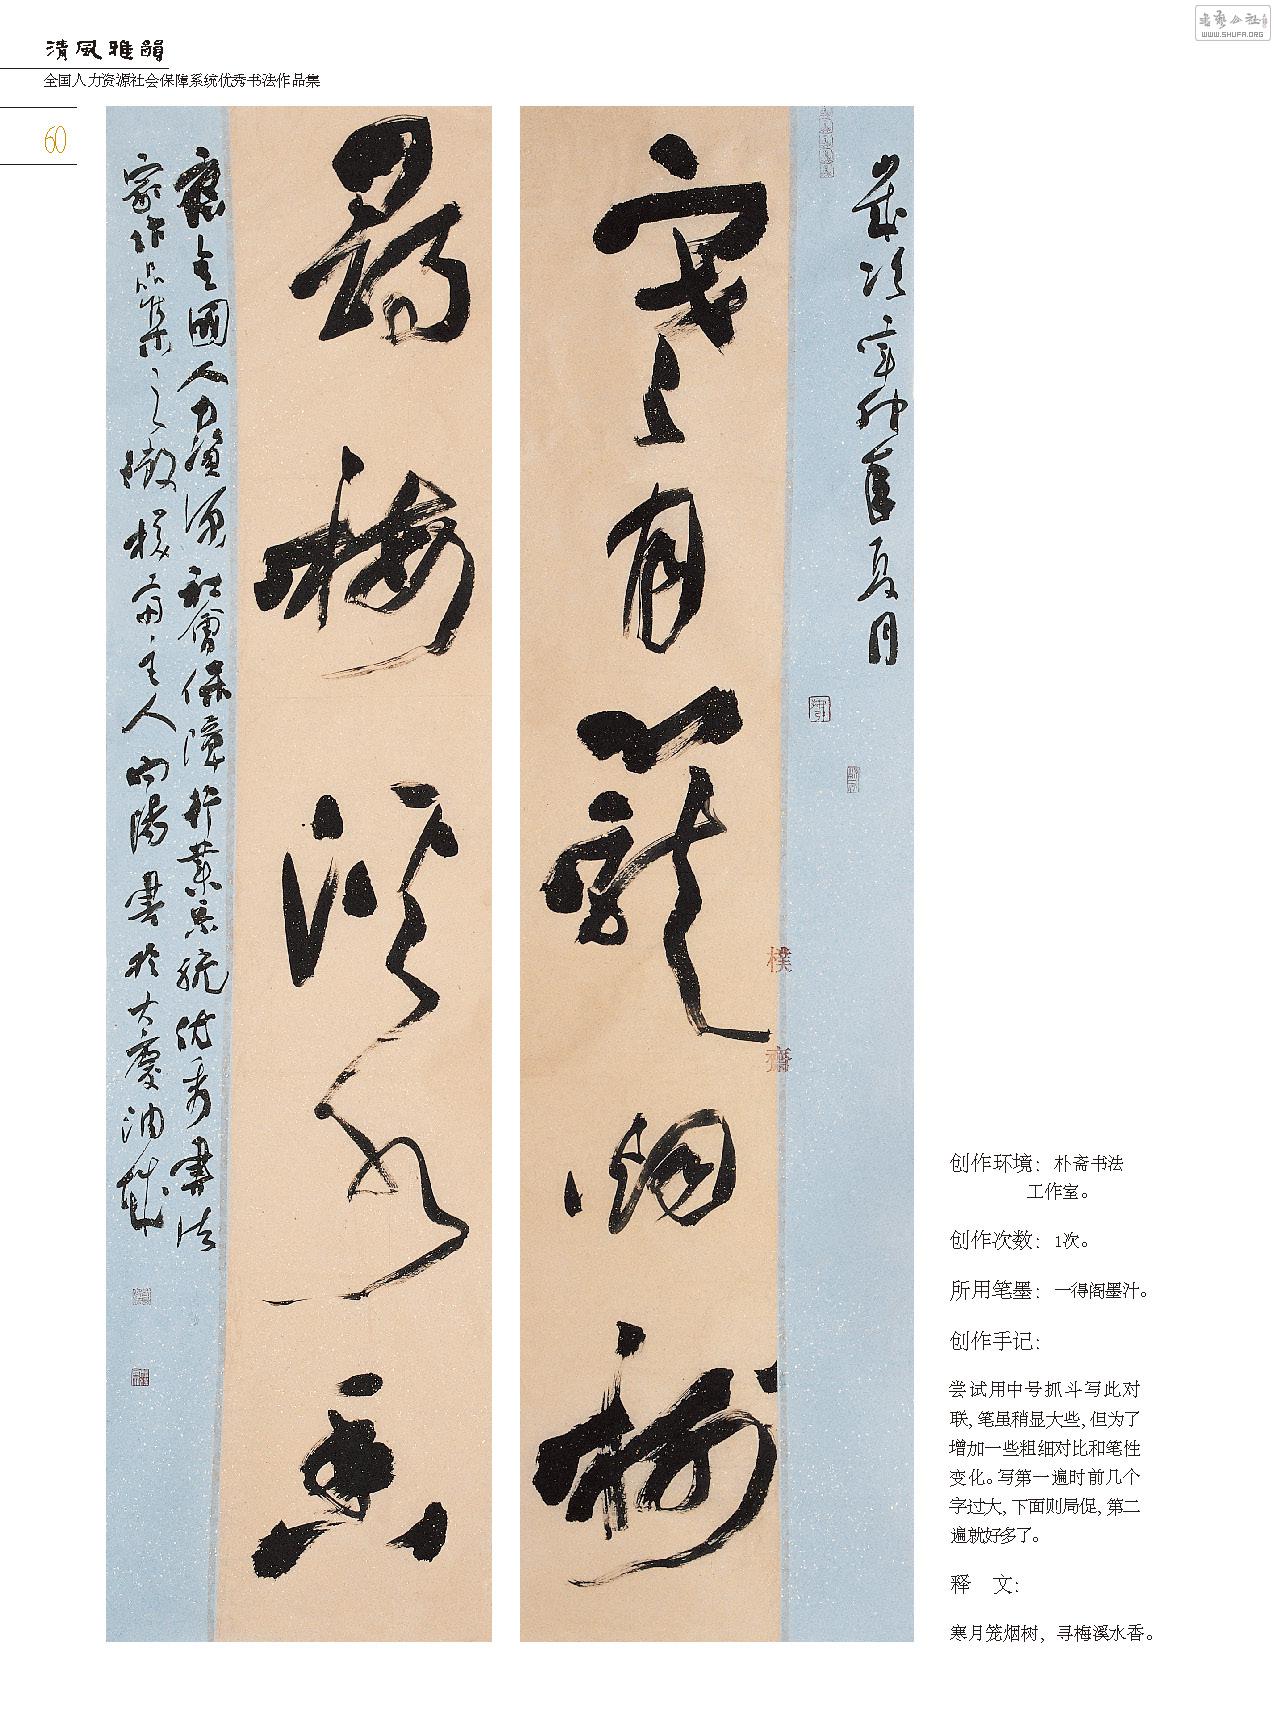 清風雅韻
全国人力资源社会保障系统优秀书法作品集
60
書藝公社
WWW.SHUFA.ORG
歲次辛卯年夏月
寒月籠烟樹
尋梅溪水香
應全國人力資源社會保障行業系統优秀書法
家作品集之徵樸齋主人向陽書於大慶油城
樸
齋
创作环境：朴斋书法
工作室。
创作次数：1次。
所用笔墨：一得阁墨汁。
创作手记：
尝试用中号抓斗写此对
联，笔虽稍显大些，但为了
增加一些粗细对比和笔性
变化。写第一遍时前几个
字过大，下面则局促，第二
遍就好多了。
释　文：
寒月笼烟树，寻梅溪水香。